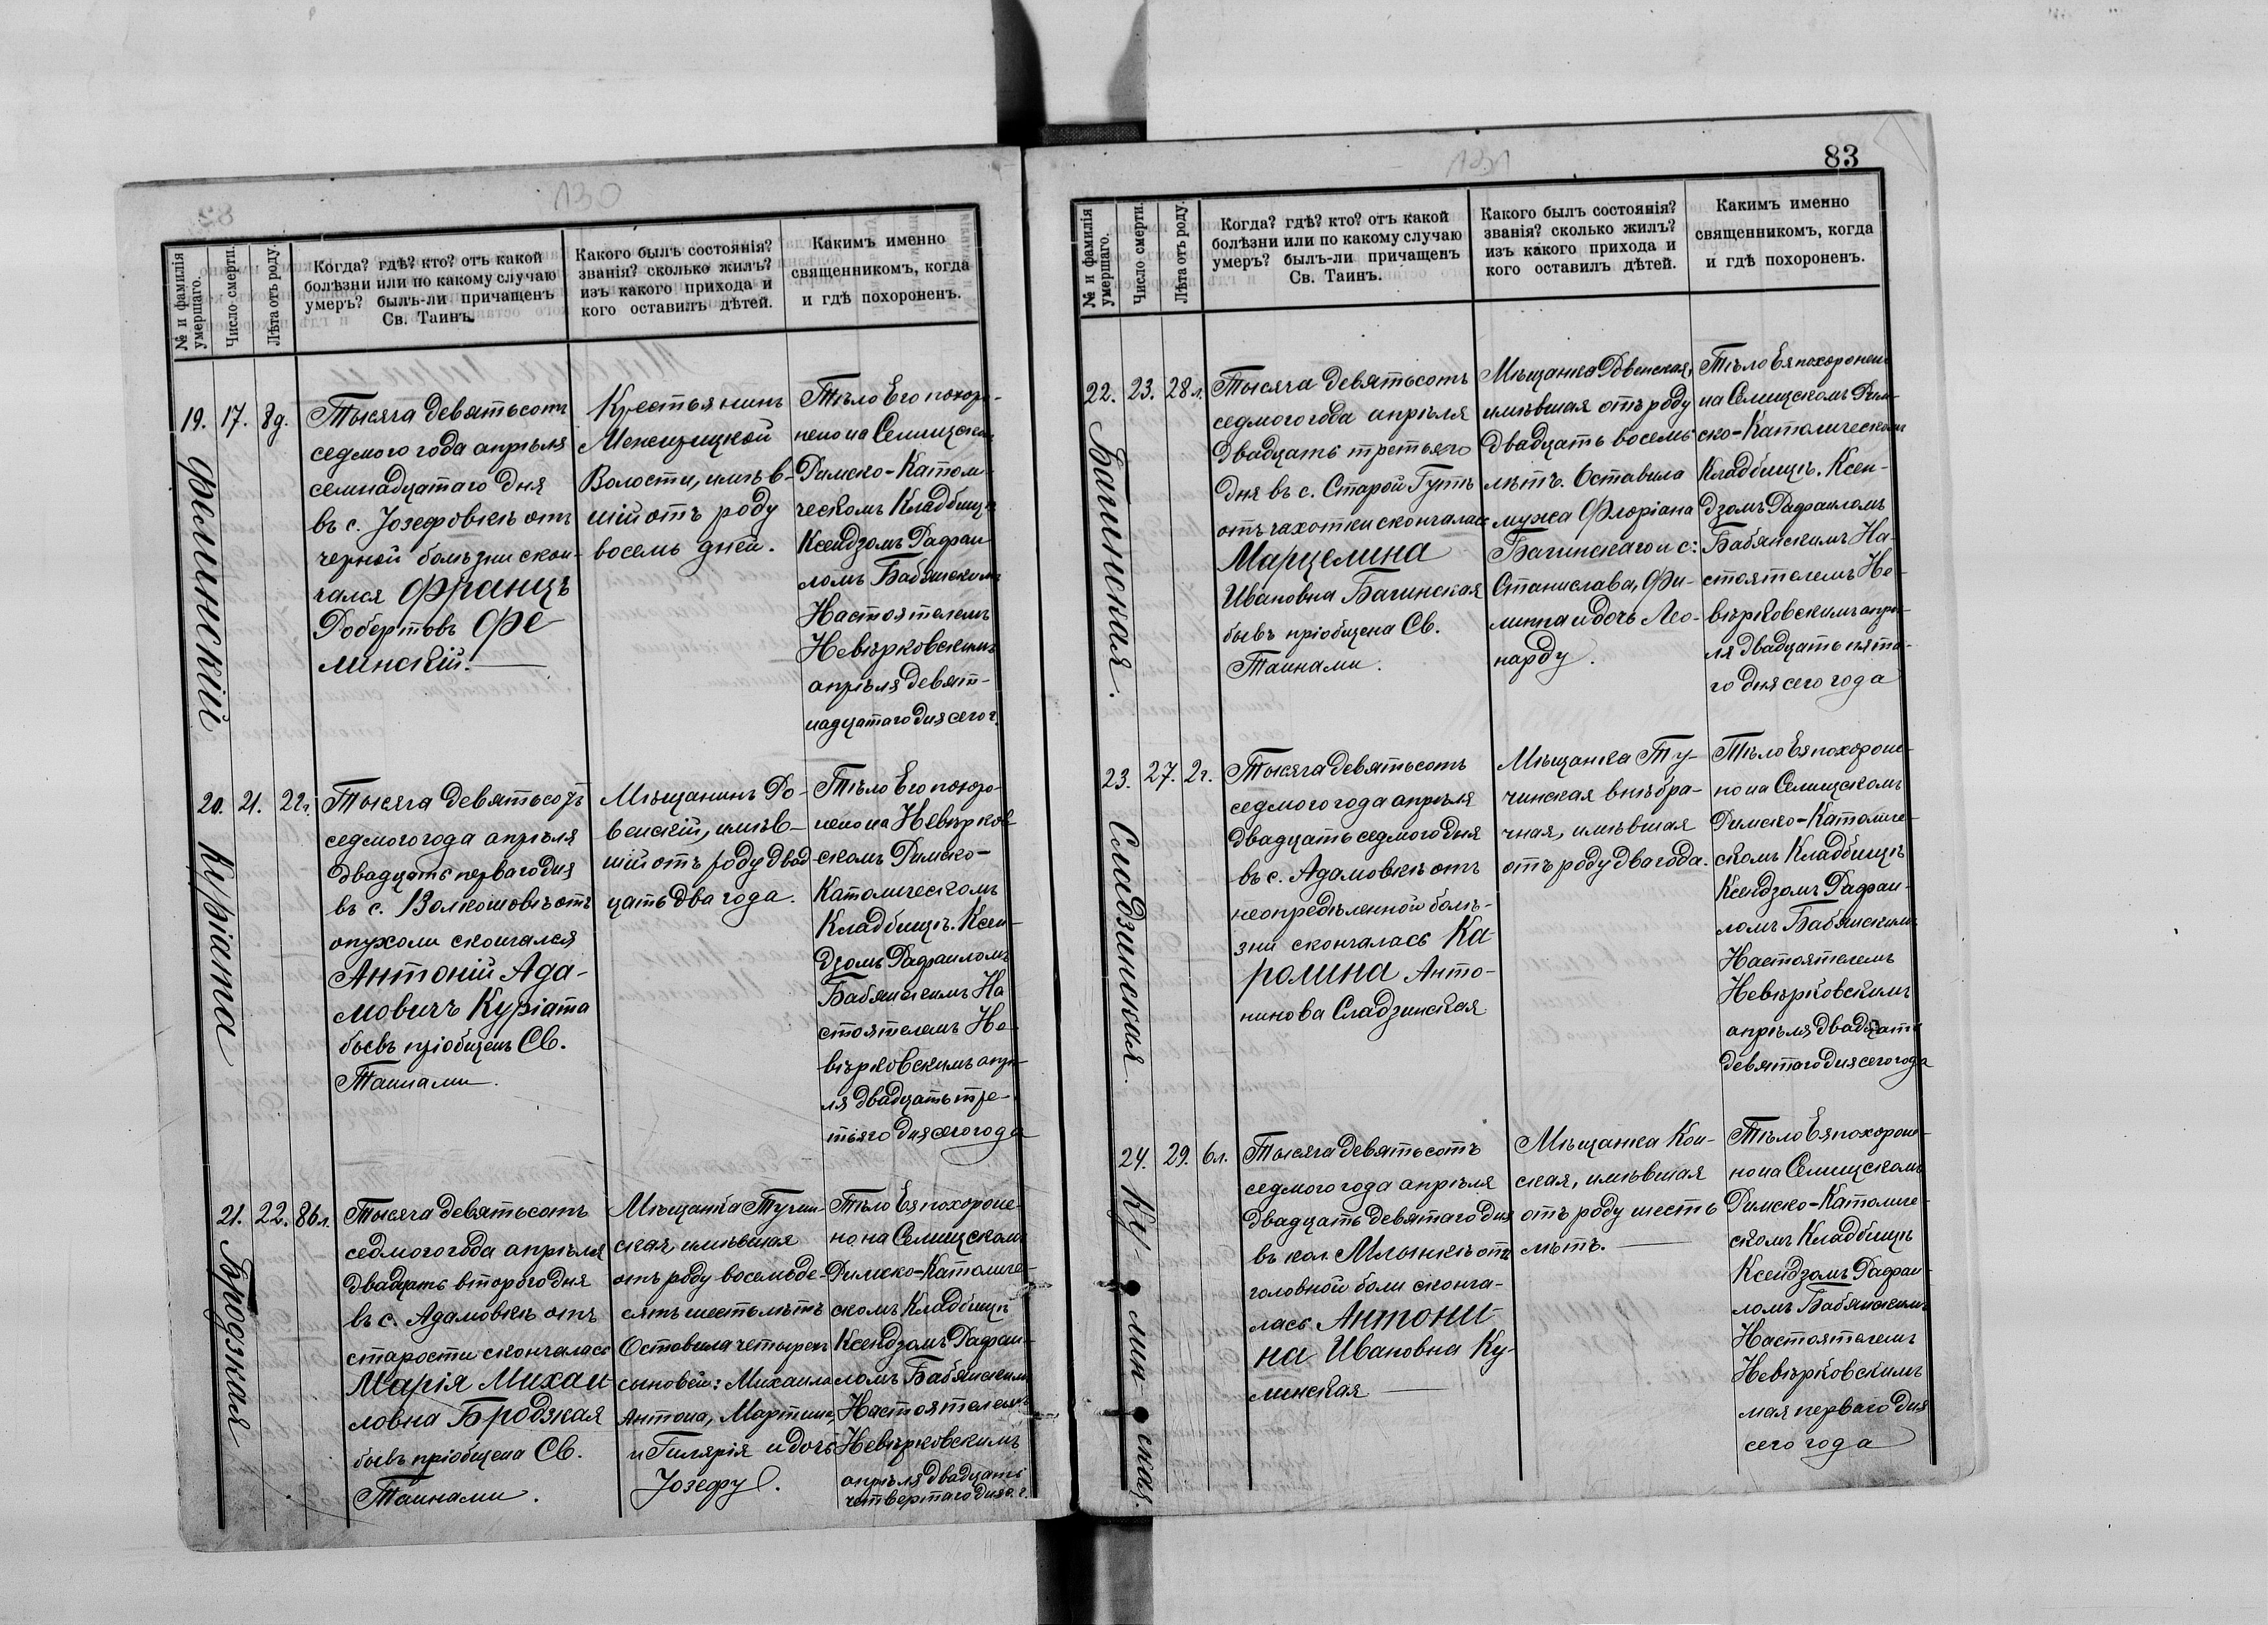 130
№ и фамилія умершаго.
Число смерти.
Лѣта отъ роду.
Когда? гдѣ? кто? отъ какой
болѣзни или по какому случаю
умеръ? былъ-ли причащенъ
Св. Таинъ.
Какого былъ состоянія?
званія? сколько жилъ?
изъ какого прихода и
кого оставилъ дѣтей.
Какимъ именно
священникомъ, когда
и гдѣ похороненъ.
19.
Фелинскій
17.
8д.
Тысяча девятьсотъ
седмого года апрѣля
семнадцатаго дня
въ с. Јозефовкѣ отъ
черной болѣзни скон-
чался Францъ
Робертовъ Фе
линскій.
Крестьянинъ
Межирицкой
Волости, имѣв-
шій отъ роду
восемь дней.
Тѣло Его похоро-
нено на Селищском
Римско-Католи-
ческомъ Кладбищѣ
Ксендзомъ Рафаи
ломъ Бабянскимъ
Настоятелемъ
Невѣрковскимъ
апрѣля девят-
надцатаго дня сего г.
20.
Куріата
21.
22г.
Тысяча девятьсотъ
седмого года апрѣля
двадцать перваго дня
въ с. Волкошовѣ отъ
опухоли скончался
Антоній Ада-
мовичъ Куріата
бывъ пріобщенъ Св.
Тайнами.
Мѣщанинъ Ро-
венскій, имѣв-
шій отъ роду двад-
цать два года.
Тѣло Его похоро-
нено на Невѣрков
скомъ Римско-
Католическомъ
Кладбищѣ. Ксен-
дзомъ Рафаиломъ
Бабянскимъ На
стоятелемъ Не-
вѣрковскимъ апрѣ-
ля двадцать тре-
тьяго дня сего года
21.
Бродзкая
22.
86л.
Тысяча девятьсотъ
седмого года апрѣля
двадцать второго дня
въ с. Адамовкѣ отъ
старости скончалась
Марія Михаи
ловна Бродзкая
бывъ пріобщена Св.
Тайнами.
Мѣщанка Тучин-
ская, имѣвшая
отъ роду восемьде-
сятъ шесть лѣтъ
Оставила четырехъ
сыновей: Михаила
Антона, Мартина,
и Гилярія и дочь
Јозефу.
Тѣло Ея похороне-
но на Селищском
Римско-Католиче-
скомъ Кладбищѣ
Ксендзомъ Рафаи-
ломъ Бабянскимъ
Настоятелемъ
Невѣрковскимъ
апрѣля двадцать
четвертаго дня с. г.
131
83
№ и фамилія умершаго.
Число смерти.
Лѣта отъ роду.
Когда? гдѣ? кто? отъ какой
болѣзни или по какому случаю
умеръ? былъ-ли причащенъ
Св. Таинъ.
Какого былъ состоянія?
званія? сколько жилъ?
изъ какого прихода и
кого оставилъ дѣтей.
Какимъ именно
священникомъ, когда
и гдѣ похороненъ.
22.
Багинская.
23.
28л.
Тысяча девятьсотъ
седмого года апрѣля
двадцать третьяго
дня въ с. Старой Гутѣ
отъ чахотки скончалась
Марцелина
Ивановна Багинская
бывъ пріобщена Св.
Тайнами.
Мѣщанка Ровенская,
имѣвшая отъ роду
двадцать восемь
лѣтъ. Оставила
мужа Флоріана
Багинскаго и с:
Станислава, Фи-
липпа и дочь Лео-
нарду.
Тѣло Ея похоронено
на Селищскомъ Рим-
ско-Католическом
Кладбищѣ. Ксен-
дзомъ Рафаиломъ
Бабянскимъ На-
стоятелемъ Не-
вѣрковскимъ апрѣ-
ля двадцать пята-
го дня сего года
23.
Сладзинская
27.
2г.
Тысяча девятьсотъ
седмого года апрѣля
двадцать седмого дня
въ с. Адамовкѣ отъ
неопредѣленной болѣ-
зни скончалась Ка
ролина Анто-
нинова Сладзинская
Мѣщанка Ту-
чинская внѣбра-
чная, имѣвшая
отъ роду два года.
Тѣло Ея похороне-
но на Селищскомъ
Римско-Католиче-
скомъ Кладбищѣ
Ксендзомъ Рафаи-
ломъ Бабянскимъ
Настоятелемъ
Невѣрковскимъ
апрѣля двадцать
девятаго дня сего года
24.
Ку-лин-ская.
29.
6л.
Тысяча девятьсотъ
седмого года апрѣля
двадцать девятаго дня
въ кол. Млынкѣ отъ
головной боли сконча-
лась Антони
на Ивановна Ку-
линская
Мѣщанка Кон-
ская, имѣвшая
отъ роду шесть
лѣтъ.
Тѣло Ея похороне-
но на Селищскомъ
Римско-Католиче-
скомъ Кладбищѣ
Ксендзомъ Рафаи-
ломъ Бабянскимъ
Настоятелемъ
Невѣрковскимъ
мая перваго дня
сего года